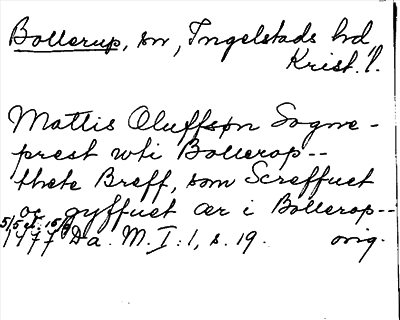 Bollerup, sn, Ingelstads hd
Krist. l.
Mattis Oluffspn Sogne-
prest vthi Bollerop--
thete Breff, som Screffuet
oc gyffuet ær i Bollerop--
5/5 el. 15/9
1477 Da. M. I:1, s. 19. orig.